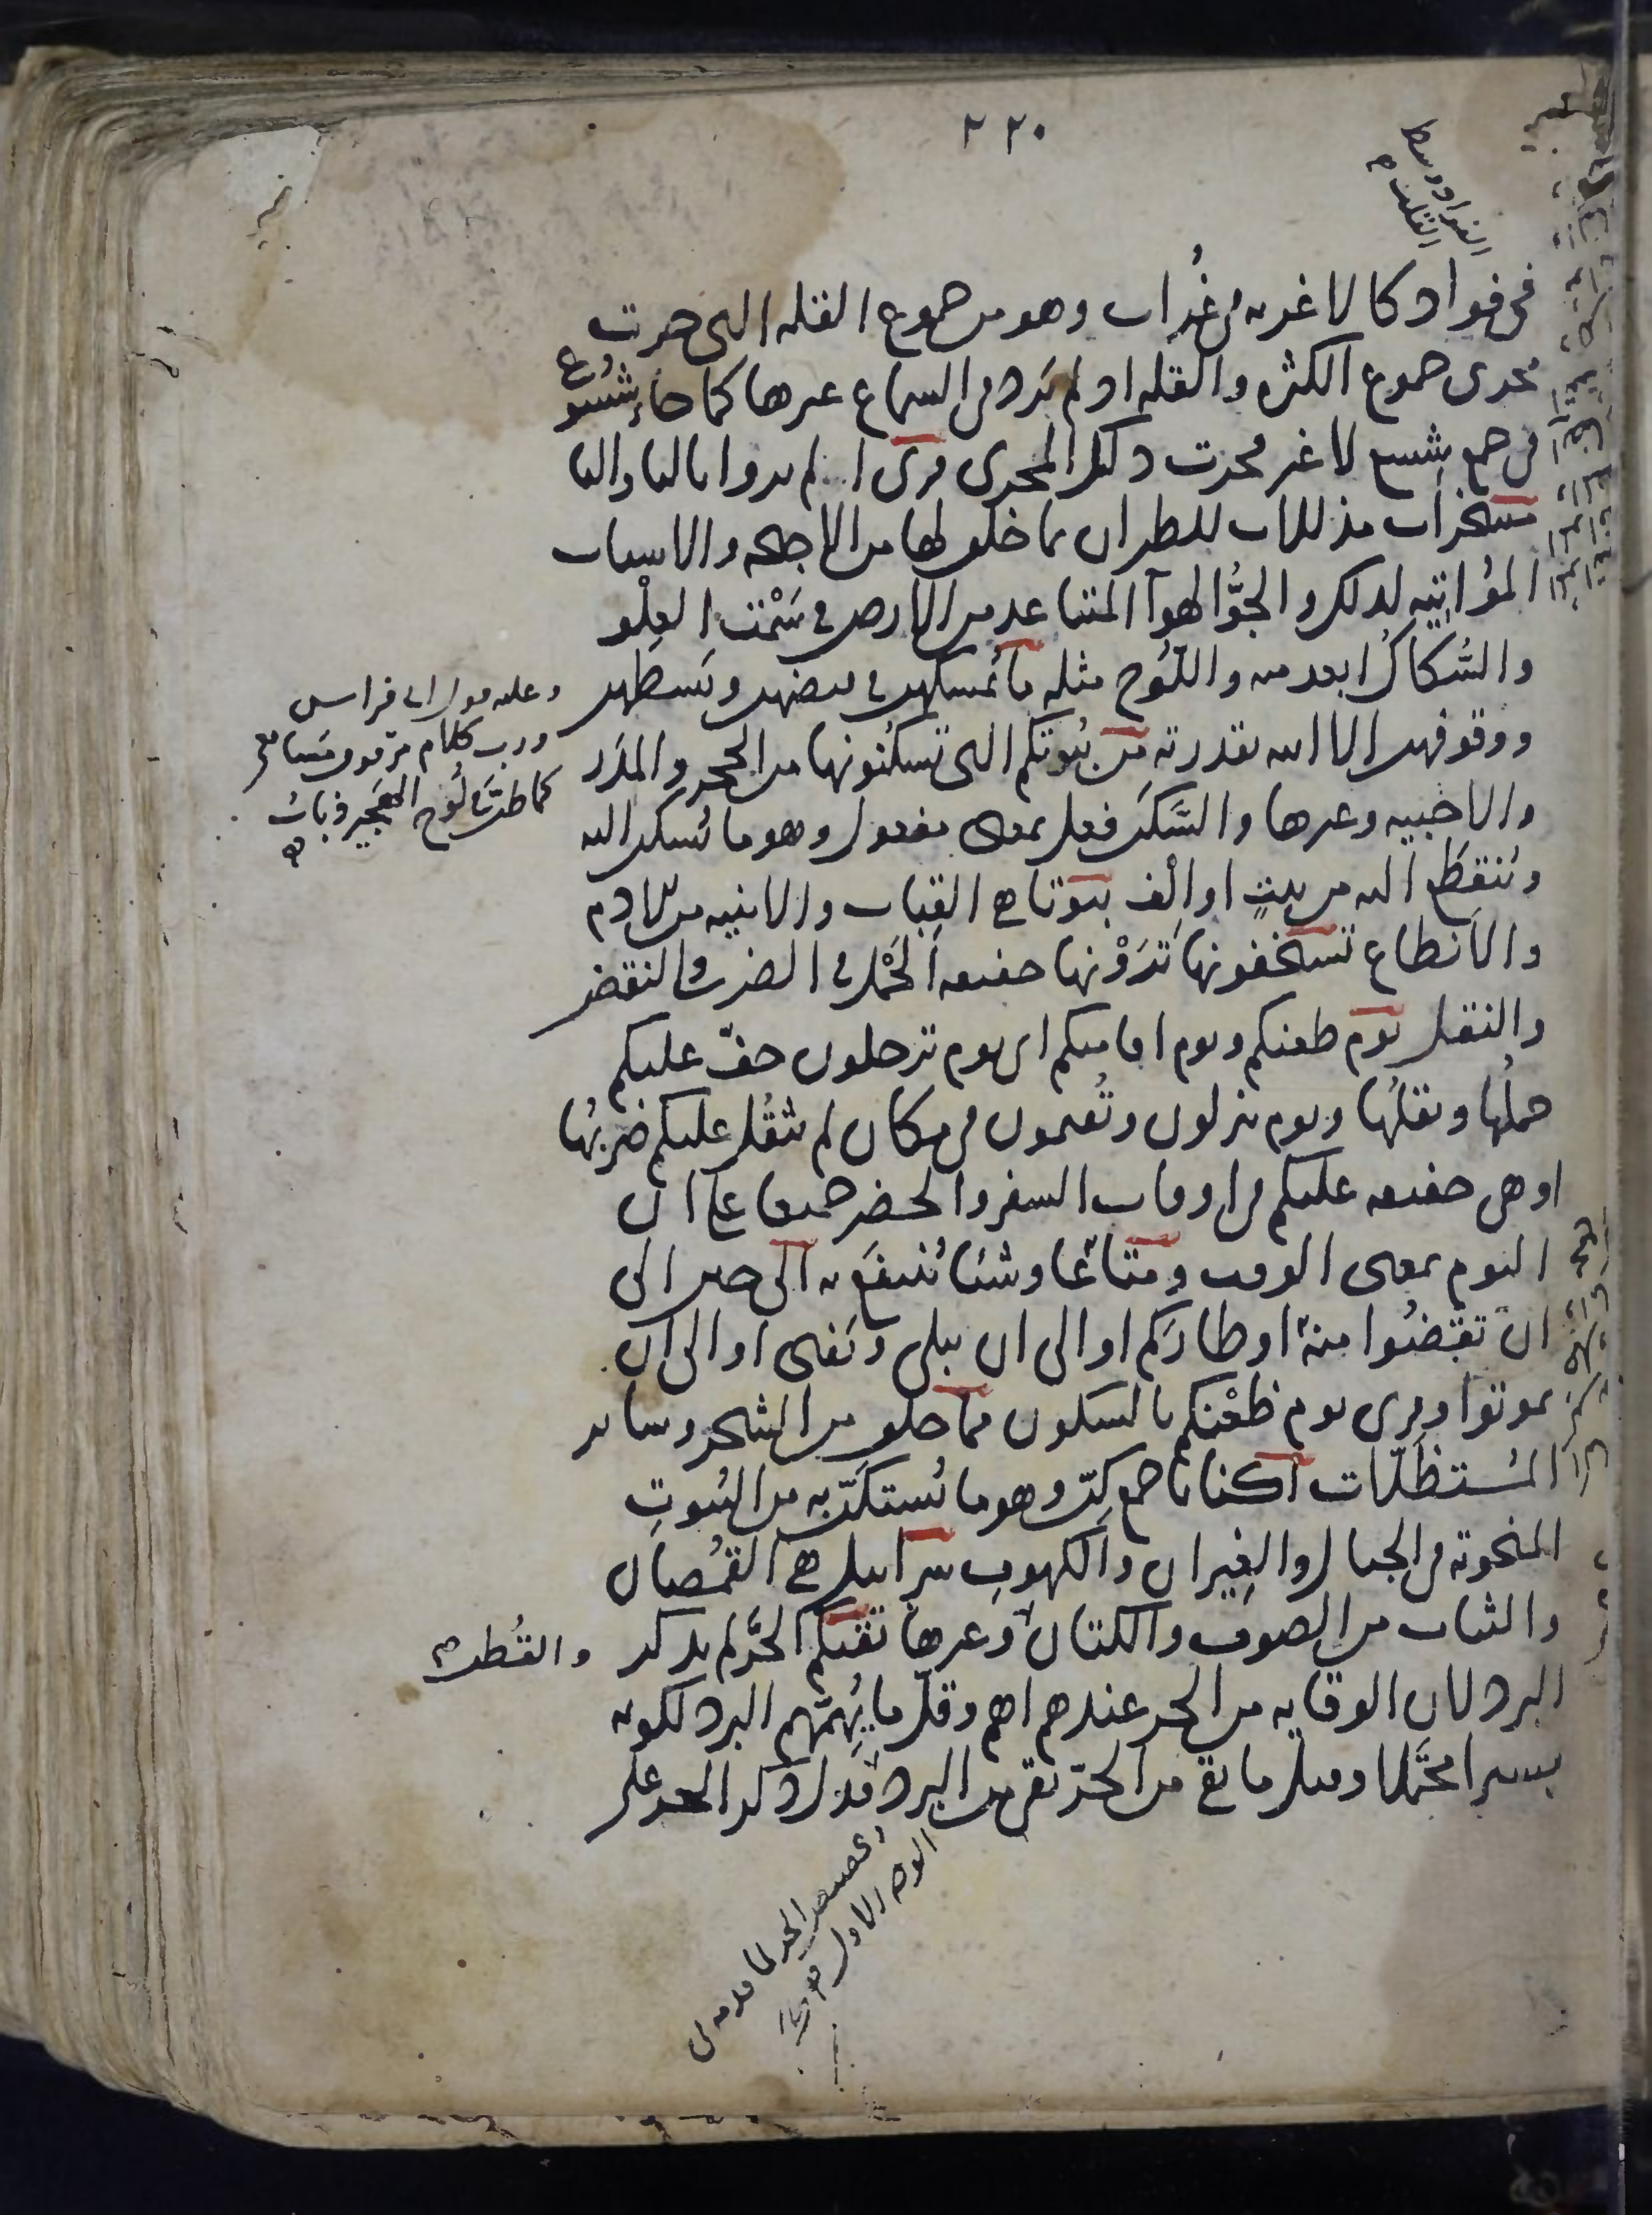 ٢٢٠
الفواد وسط
القلب
في فواد كالاغربه في غُراب وهو من جموع القله التي جرت
مجرى جموع الكثره والقله اذ لم يَرد في السماع غيرها كما جاء شُسُوع
في جمع شسع لا غير فجرت ذلك المجرى قرى الم يروا بالتاء والياء
مسخرات مذللات للطيران بما خلق لها من الاجنحه والاسباب
المؤاتيه لذلك والجوُّ الهوآ المتباعد من الارض في سَمْت العلْو
والسُّكاكُ ابعد منه واللُّوح مثله ما يُمسكهن في قبضهن وبَسطهن
ووقوفهن الا الله بقدرته من بُيُوتكم التي تسكُنُونها من الحجر والمدَر
والاخبيه وغيرها والسَّكَن فعل بمعنى مفعول وهو ما يُسكن اليه
ويُنقطَع اليه من بيتٍ او الْف بيوتا هي القِباب والابنيه من الادم
والانطاع تستخفونها تَرَوْنها خفيفه الحَمْل في الضرب والنقض
والنقل يوم ظعنكم ويوم اقامتكم اى يوم ترحلون خفّ عليكم
حملُها ونقلُها ويوم تنزلون وتُقيمون في مكان لم يثقُل عليكم ضربُها
او هي خفيفه عليكم في اوقات السفر والحضر جميعا على ان
اليوم بمعنى الوقت ومتاعًا وشيئا يُنتفَع به الى حين الى
ان تقضُوا منهُ اوطارَكم او الى ان يبلى ويَفنى او الى ان
تموتوا وقرى يوم ظعْنكم بالسكون مما خلق من الشجر وساير
المُستظَلّات اكنانا جمع كِنّ وهو ما يُستكَنّ به من البُيوتِ
المنحوته في الجبال والغيران والكهوف سرابيل هي القُمصان
والثياب من الصوف والكتان وغيرها تقيكم الحَرّ لم يذكر
والقُطن
البرد لان الوقايه من الحر عندهم اهم وقلّ ما يُهِمّهم البرد لكونه
يسيرا محتَمَلا وقيل ما يقي من الحَرّ يقي من البرد فدل ذكر الحر على
وعليه قول ابي فراس
ورب كلام مرّ فوق مسامعي
كما طنّ في لُوح الهَجير ذبابُ
الوجه الاول